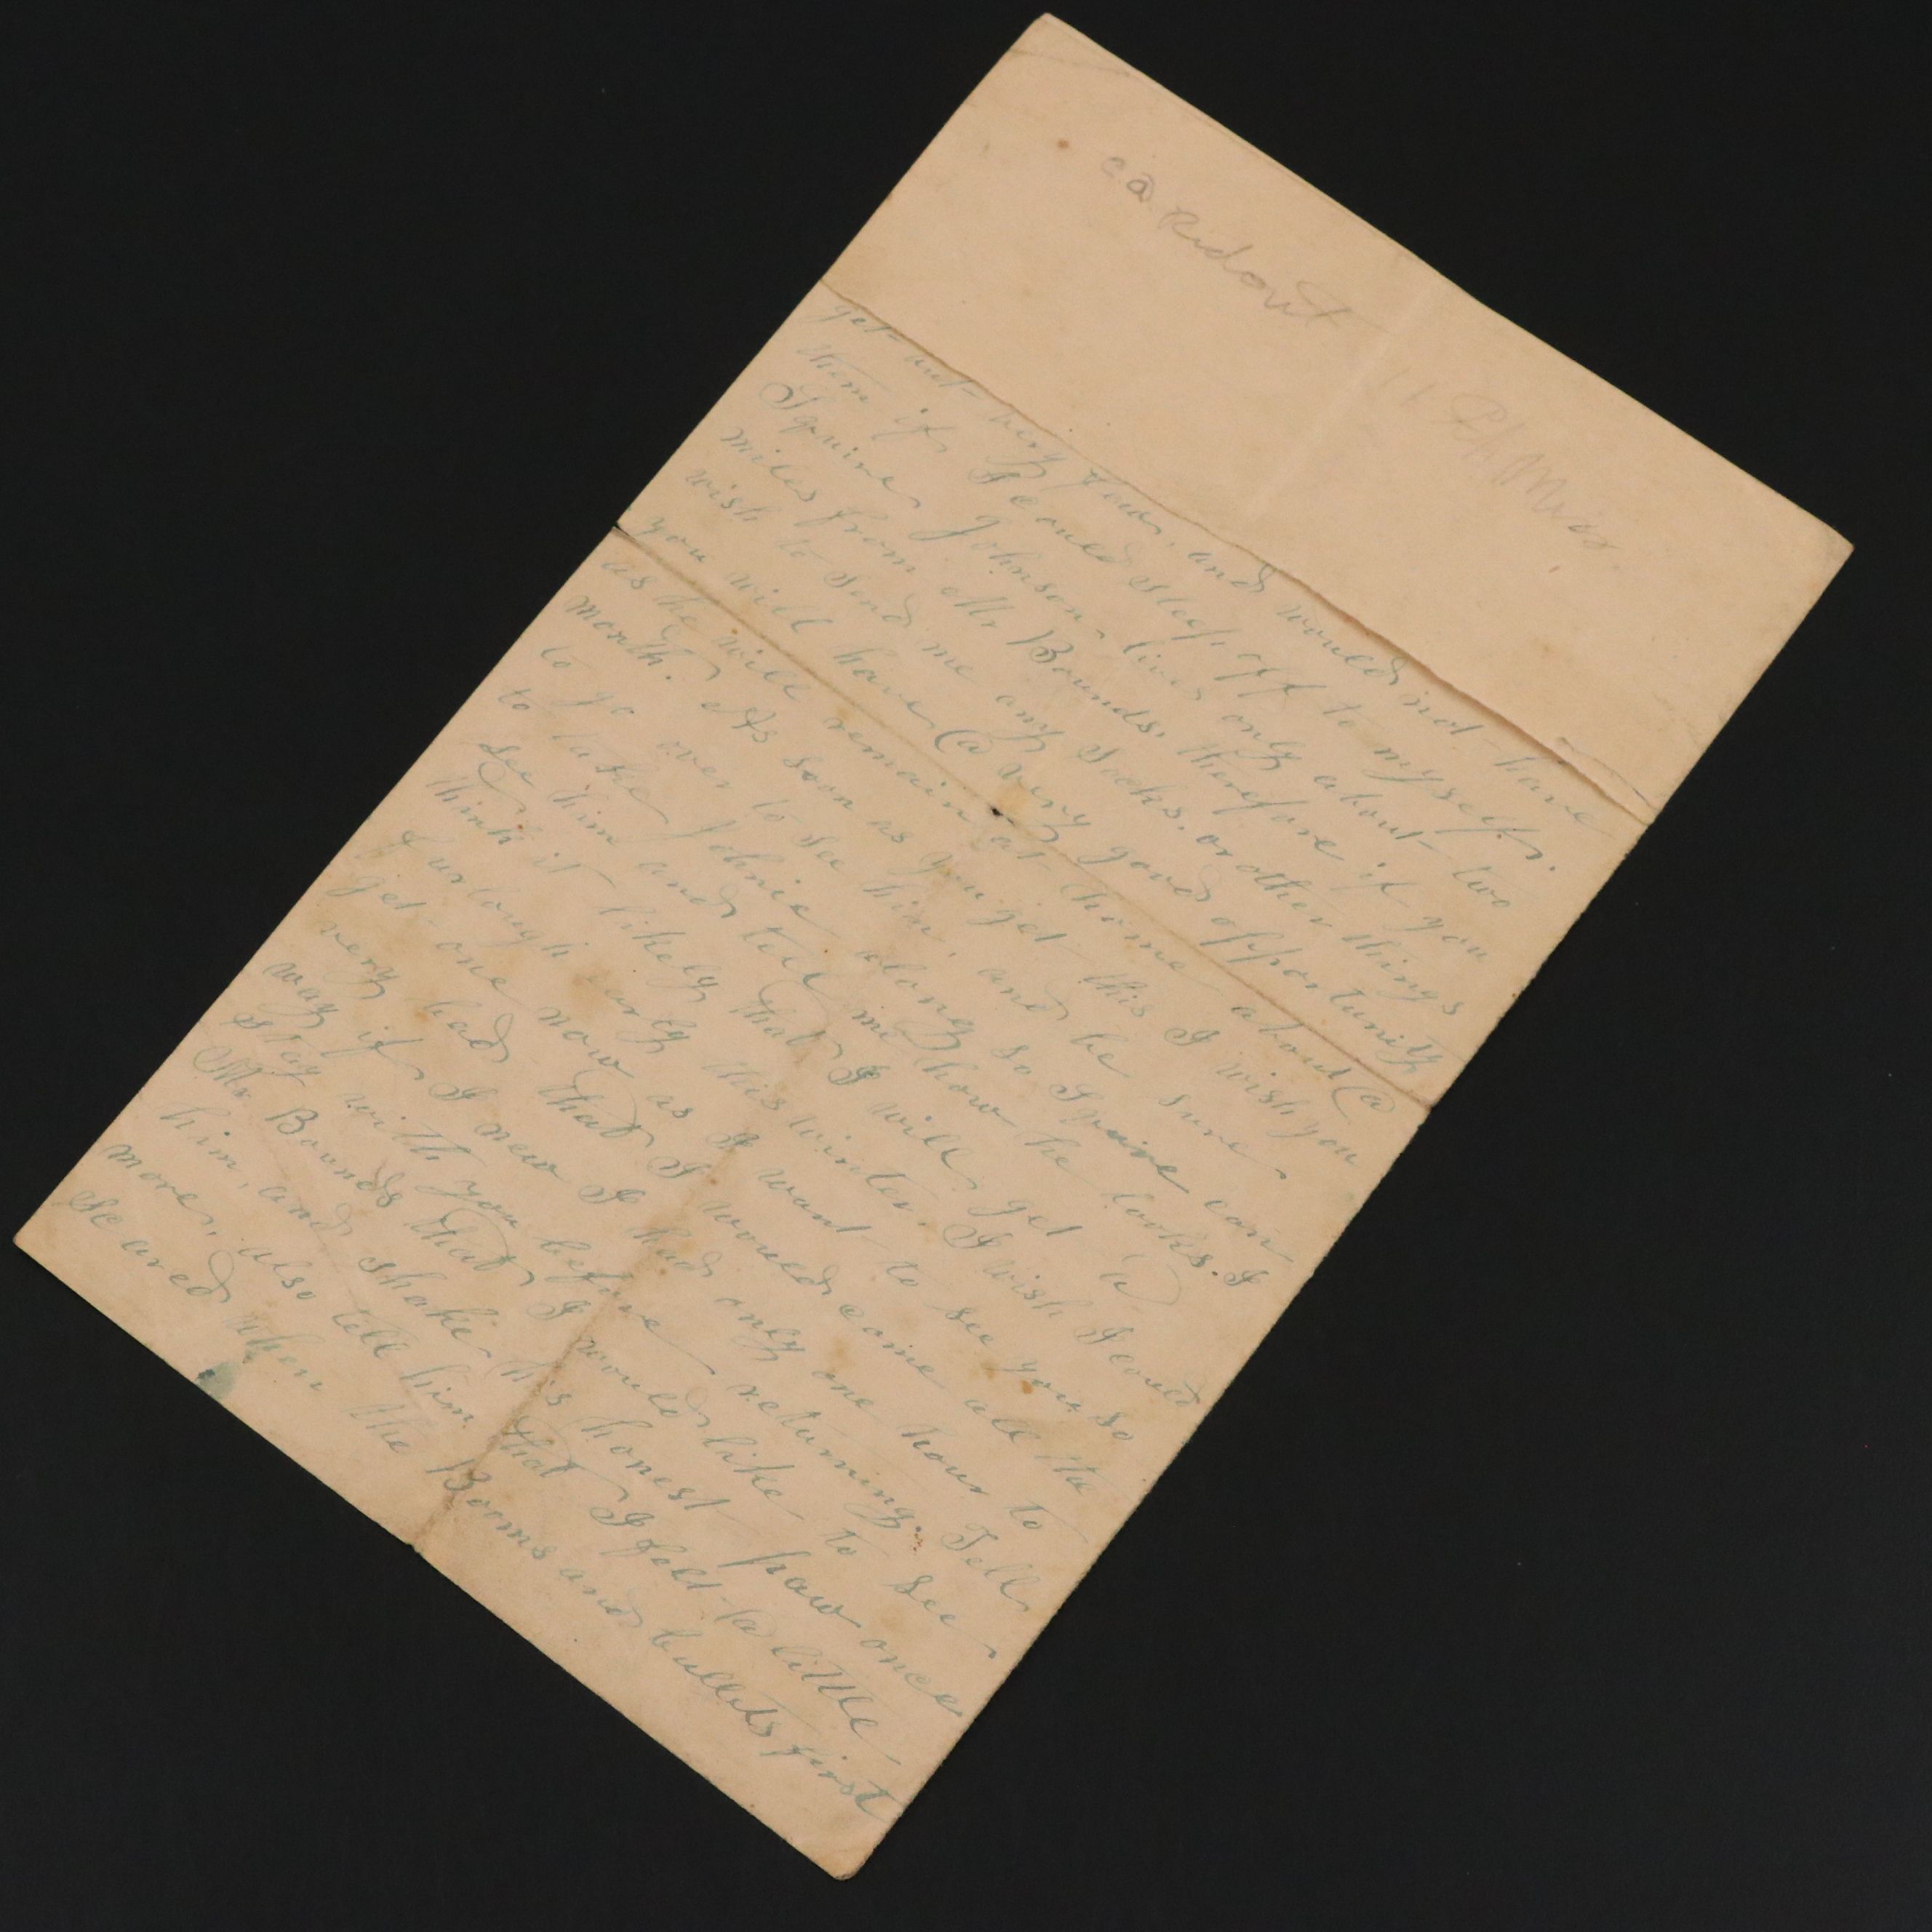 Ridout 11
get-out-
very few, and would not-have
them if I could sleep off to myself.
Squire Johnson, lives only about- two
miles from Mr Bounds, therefore if you
wish to send me any socks, or other things
you will have (a very good opportunity
as he will remain at- home about (a
month. As soon as you get- this I wish you
to go over to see him, and be sure
to take Johnie along so Squire can
see him and tell me how he looks. I
think it- likely that I will get (a
furlough early this winter. I wish I coud
get-one now as I want- to see you so
very bad- that I would come all the
way if I new I had only one hour to
stay with you before returning. Tell
Mr Bounds that I would like- to see
him, and shake his honest- paw once
more, also tell him that I felt- (a little
scared when the Booms and bullets first